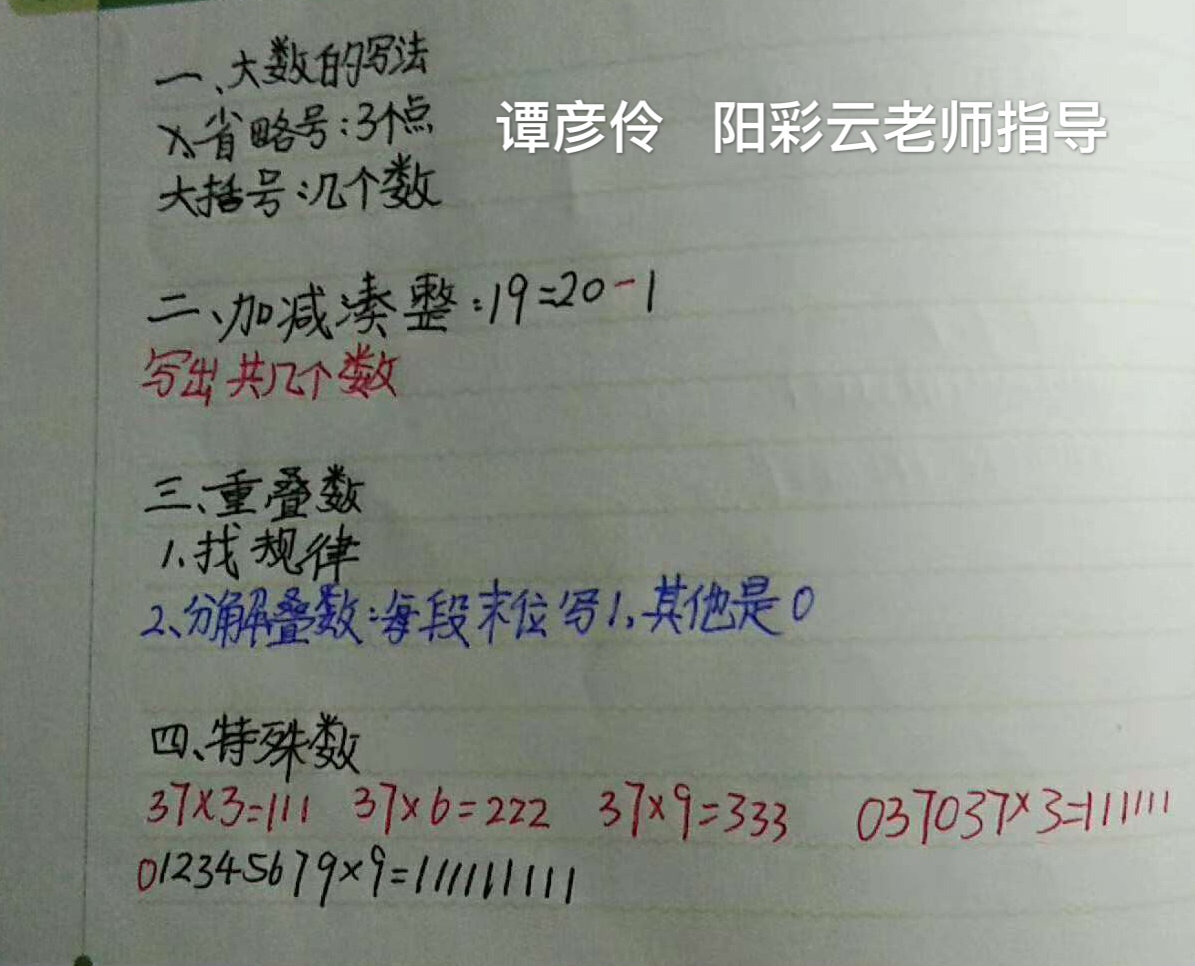 一、大数的写法
谭彦伶 阳彩云老师指导
省略号:3个点
大括号:几个数
二、加减凑整:19=20-1
写出共几个数
三、重叠数
1.找规律
2、分解叠数:每段末位写1,其他是0
四、特殊数
37×3=111 37×6=222 37×9=333 037037×3=111111
012345679×9=111111111